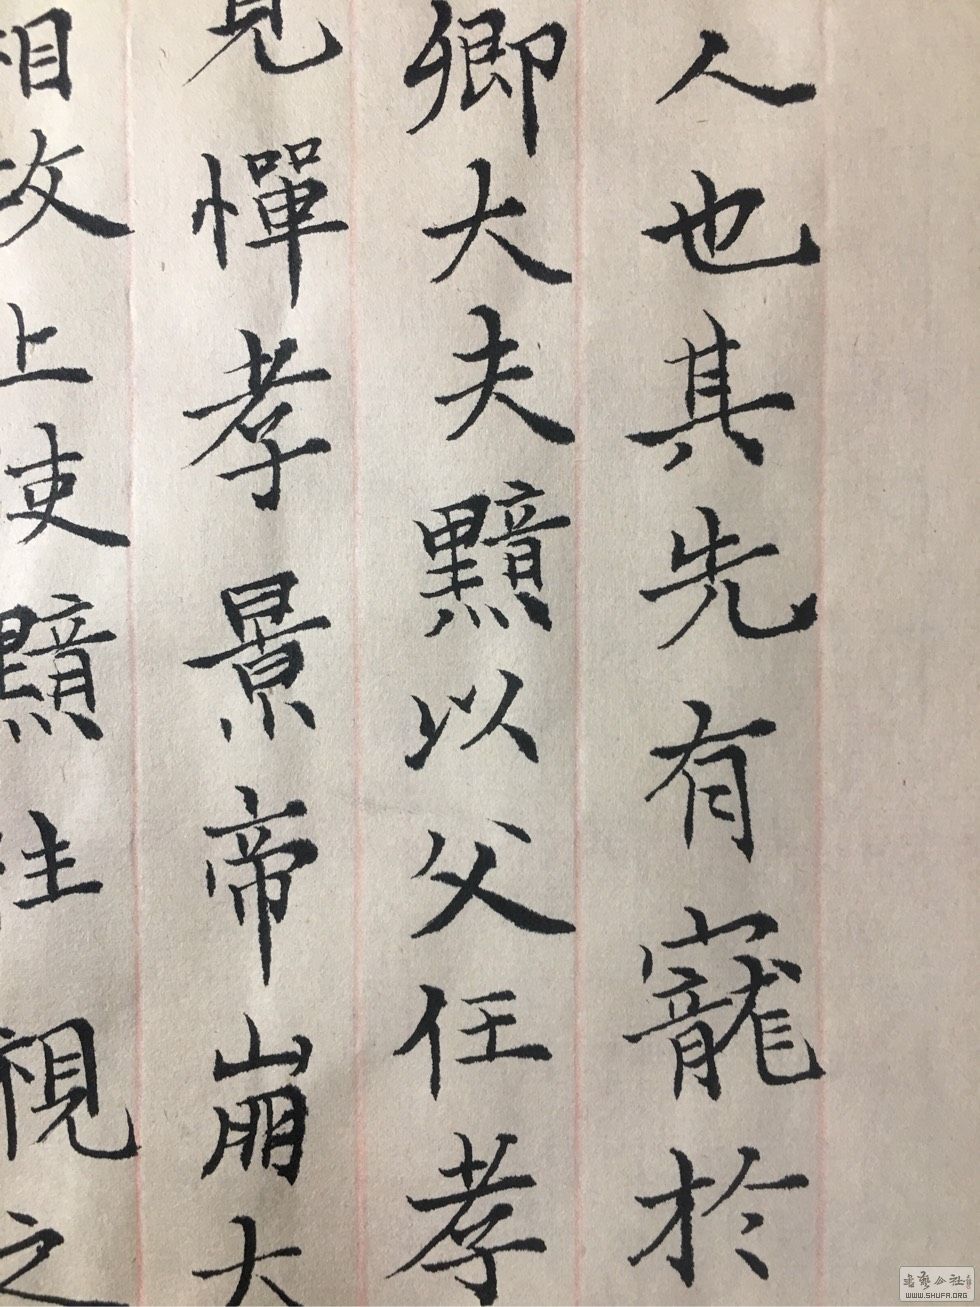 人也其先有寵於
卿大夫黯以父任孝
見憚孝景帝崩大
相攻上使黯往視之
書藝公社
WWW.SHUFA.ORG